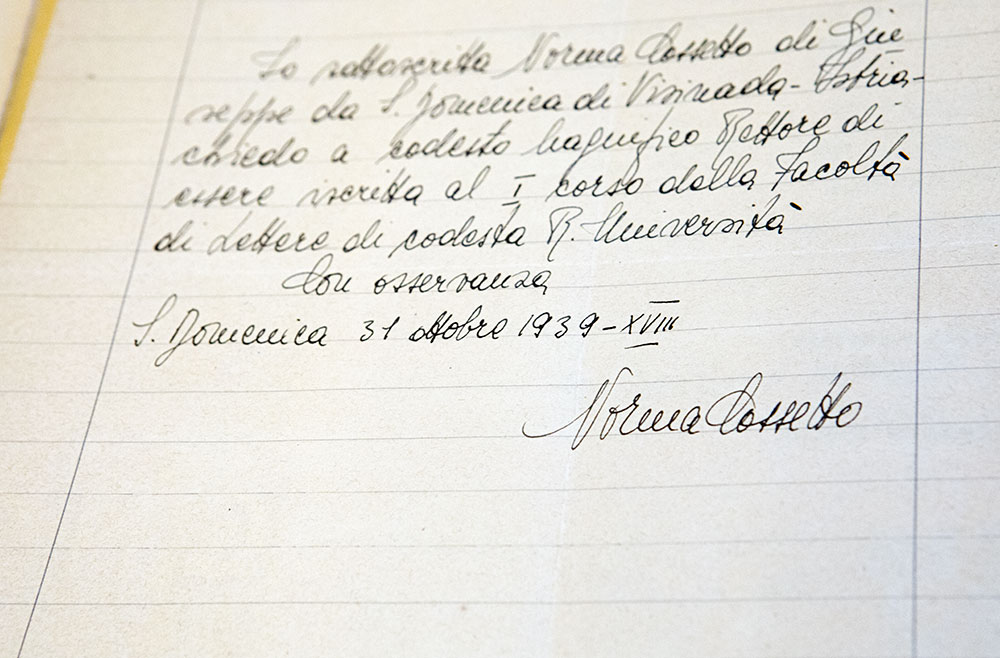 La sottoscritta Norma Cossetto di Giu
seppe da S. Domenica di Visinada - Istria -
chiedo a codesto Magnifico Rettore di
essere iscritta al I corso della Facoltà
di Lettere di codesta R. Università
Con osservanza
S. Domenica 31 ottobre 1939 - XVIII
Norma Cossetto